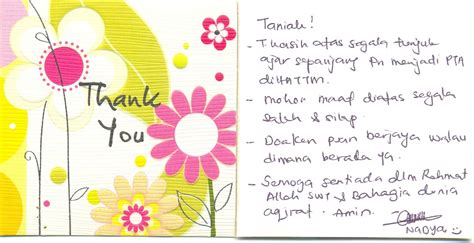 Thank
You
Taniah!
- T kasih atas segala tunjuk
ajar sepanjang Pn menjadi PTA
di HATTM.
- mohon maaf diatas segala
salah & silap.
- Doakan puan berjaya walau
dimana berada ya.
- Semoga sentiada dlm Rahmat
Allah swt & Bahagia dunia
aqirat. Amin.